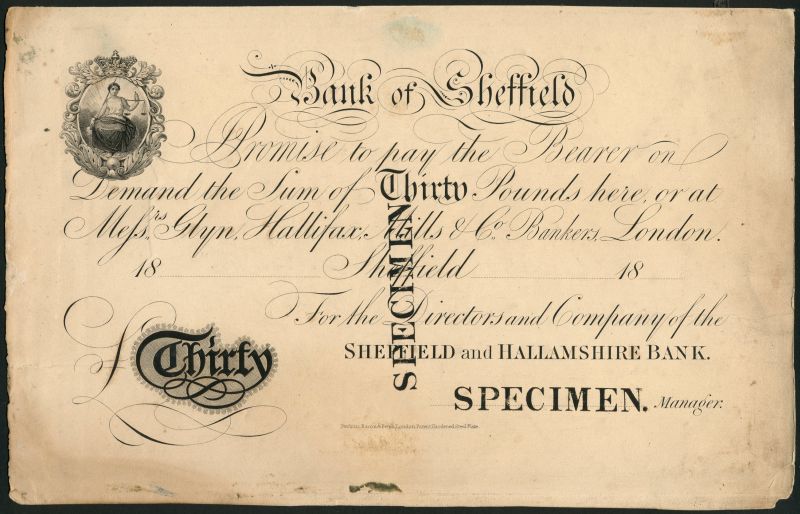 Bank of Sheffield
Promise to pay the Bearer on
Demand the Sum of Thirty Pounds here, or at
Messrs. Glyn, Hallifax, Mills & Co. Bankers, London.
18 Sheffield 18
For the Directors and Company of the
SHEFFIELD and HALLAMSHIRE BANK.
£ Thirty
SPECIMEN. Manager.
SPECIMEN
Perkins, Bacon & Petch, London, Patent Hardened Steel Plate.